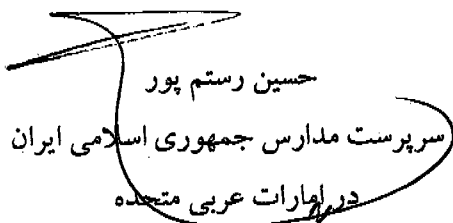 حسین رستم پور
سرپرست مدارس جمهوری اسلامی ایران
در امارات عربی متحده